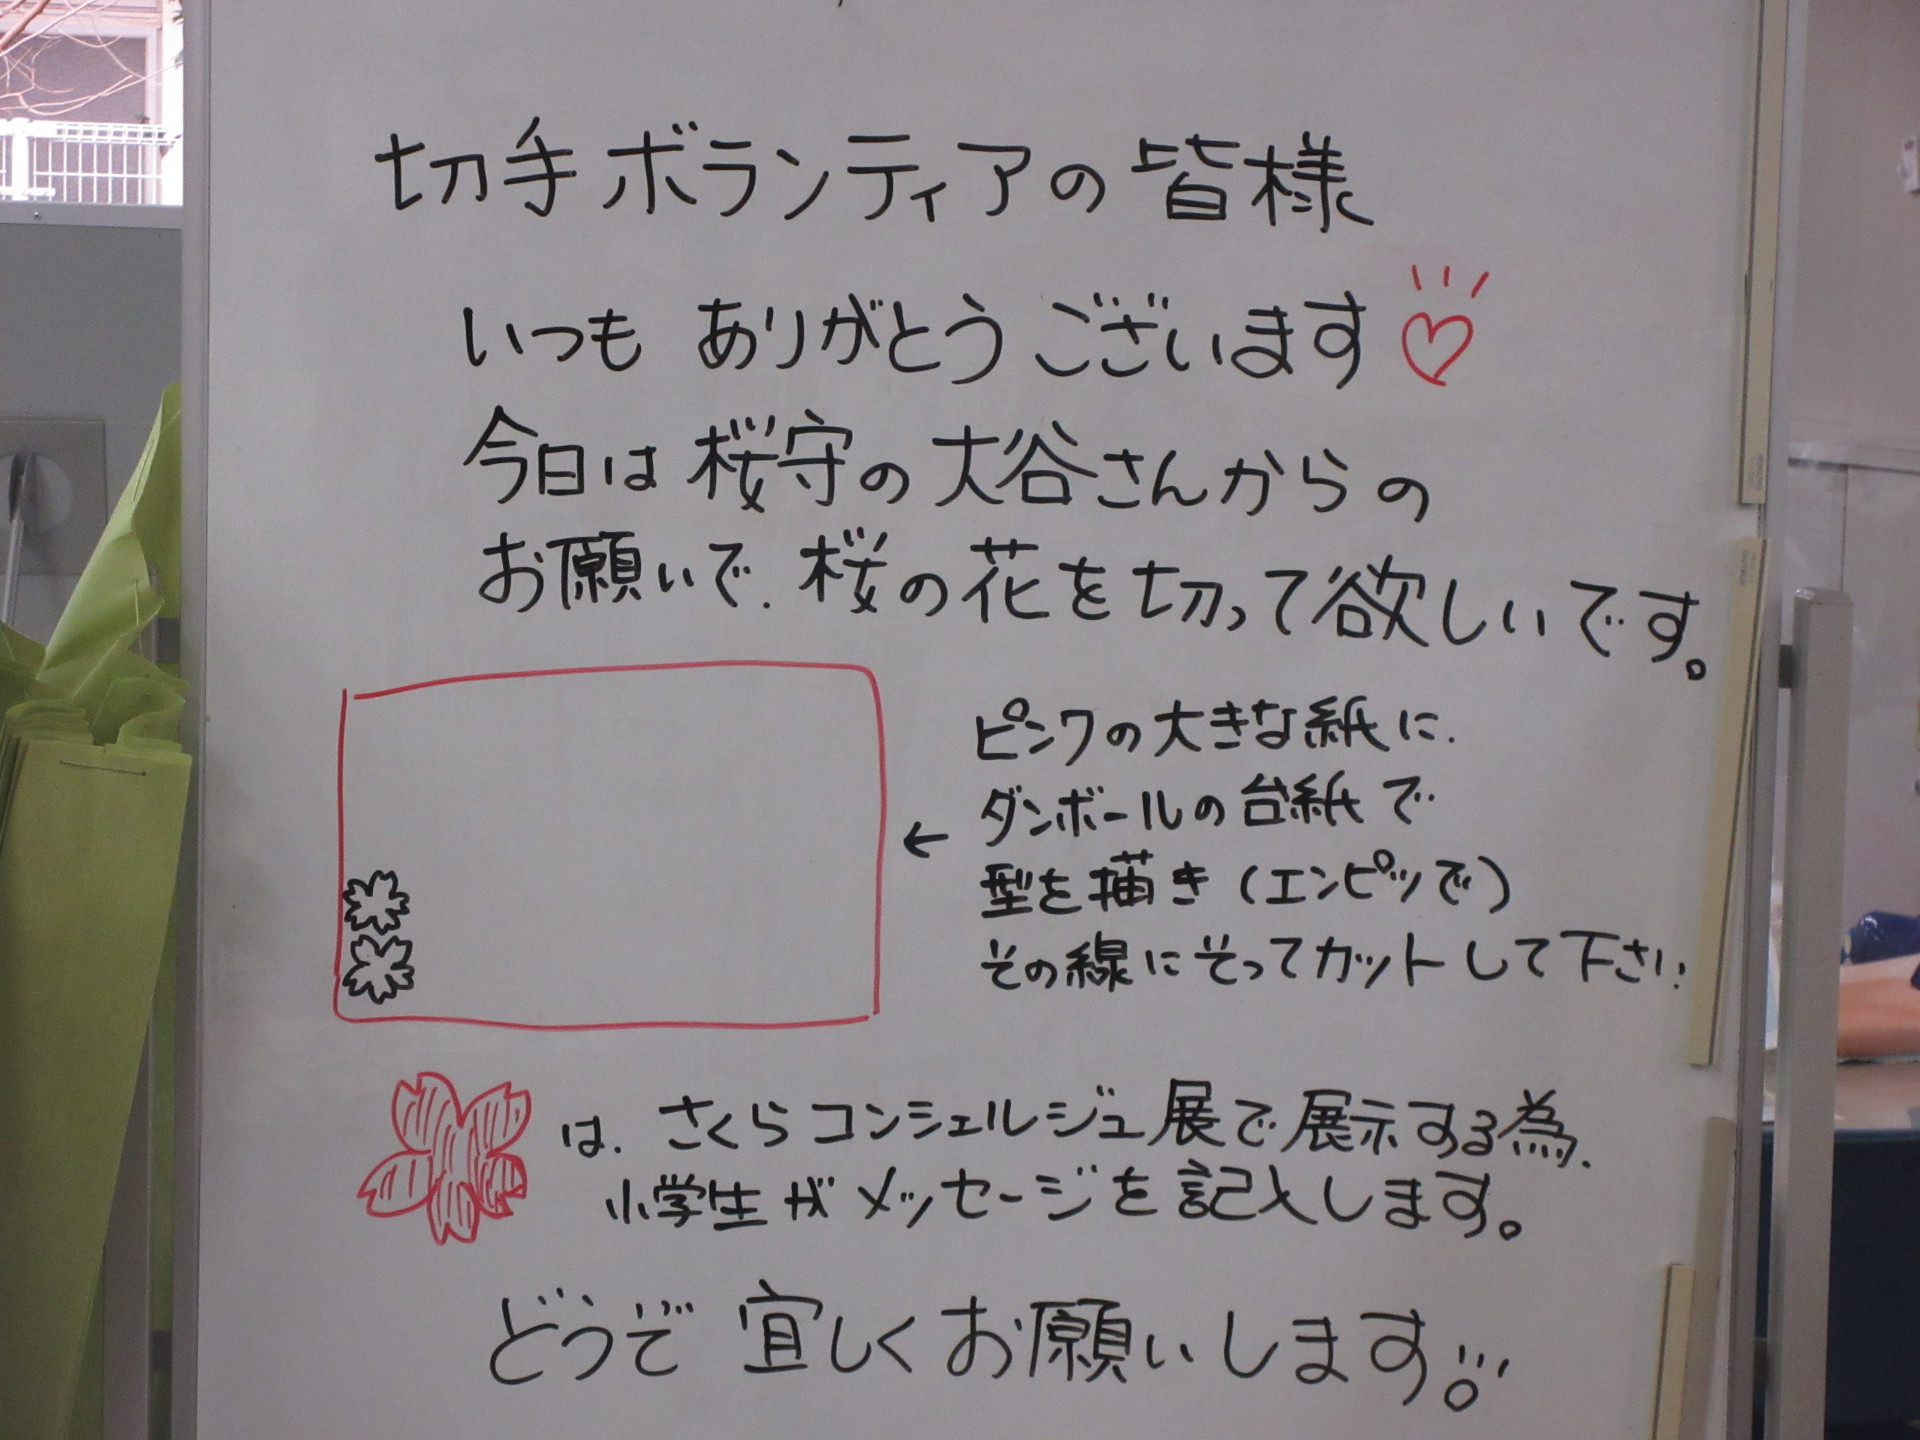 切手ボランティアの皆様
いつも ありがとうございます♡
今日は桜守の大谷さんからの
お願いで、桜の花を切って欲しいです。
ピンクの大きな紙に、
←ダンボールの台紙で
型を描き(エンピツで)
その線にそってカットして下さい。
は、さくらコンシェルジュ展で展示する為、
小学生がメッセージを記入します。
どうぞ宜しくお願いします。